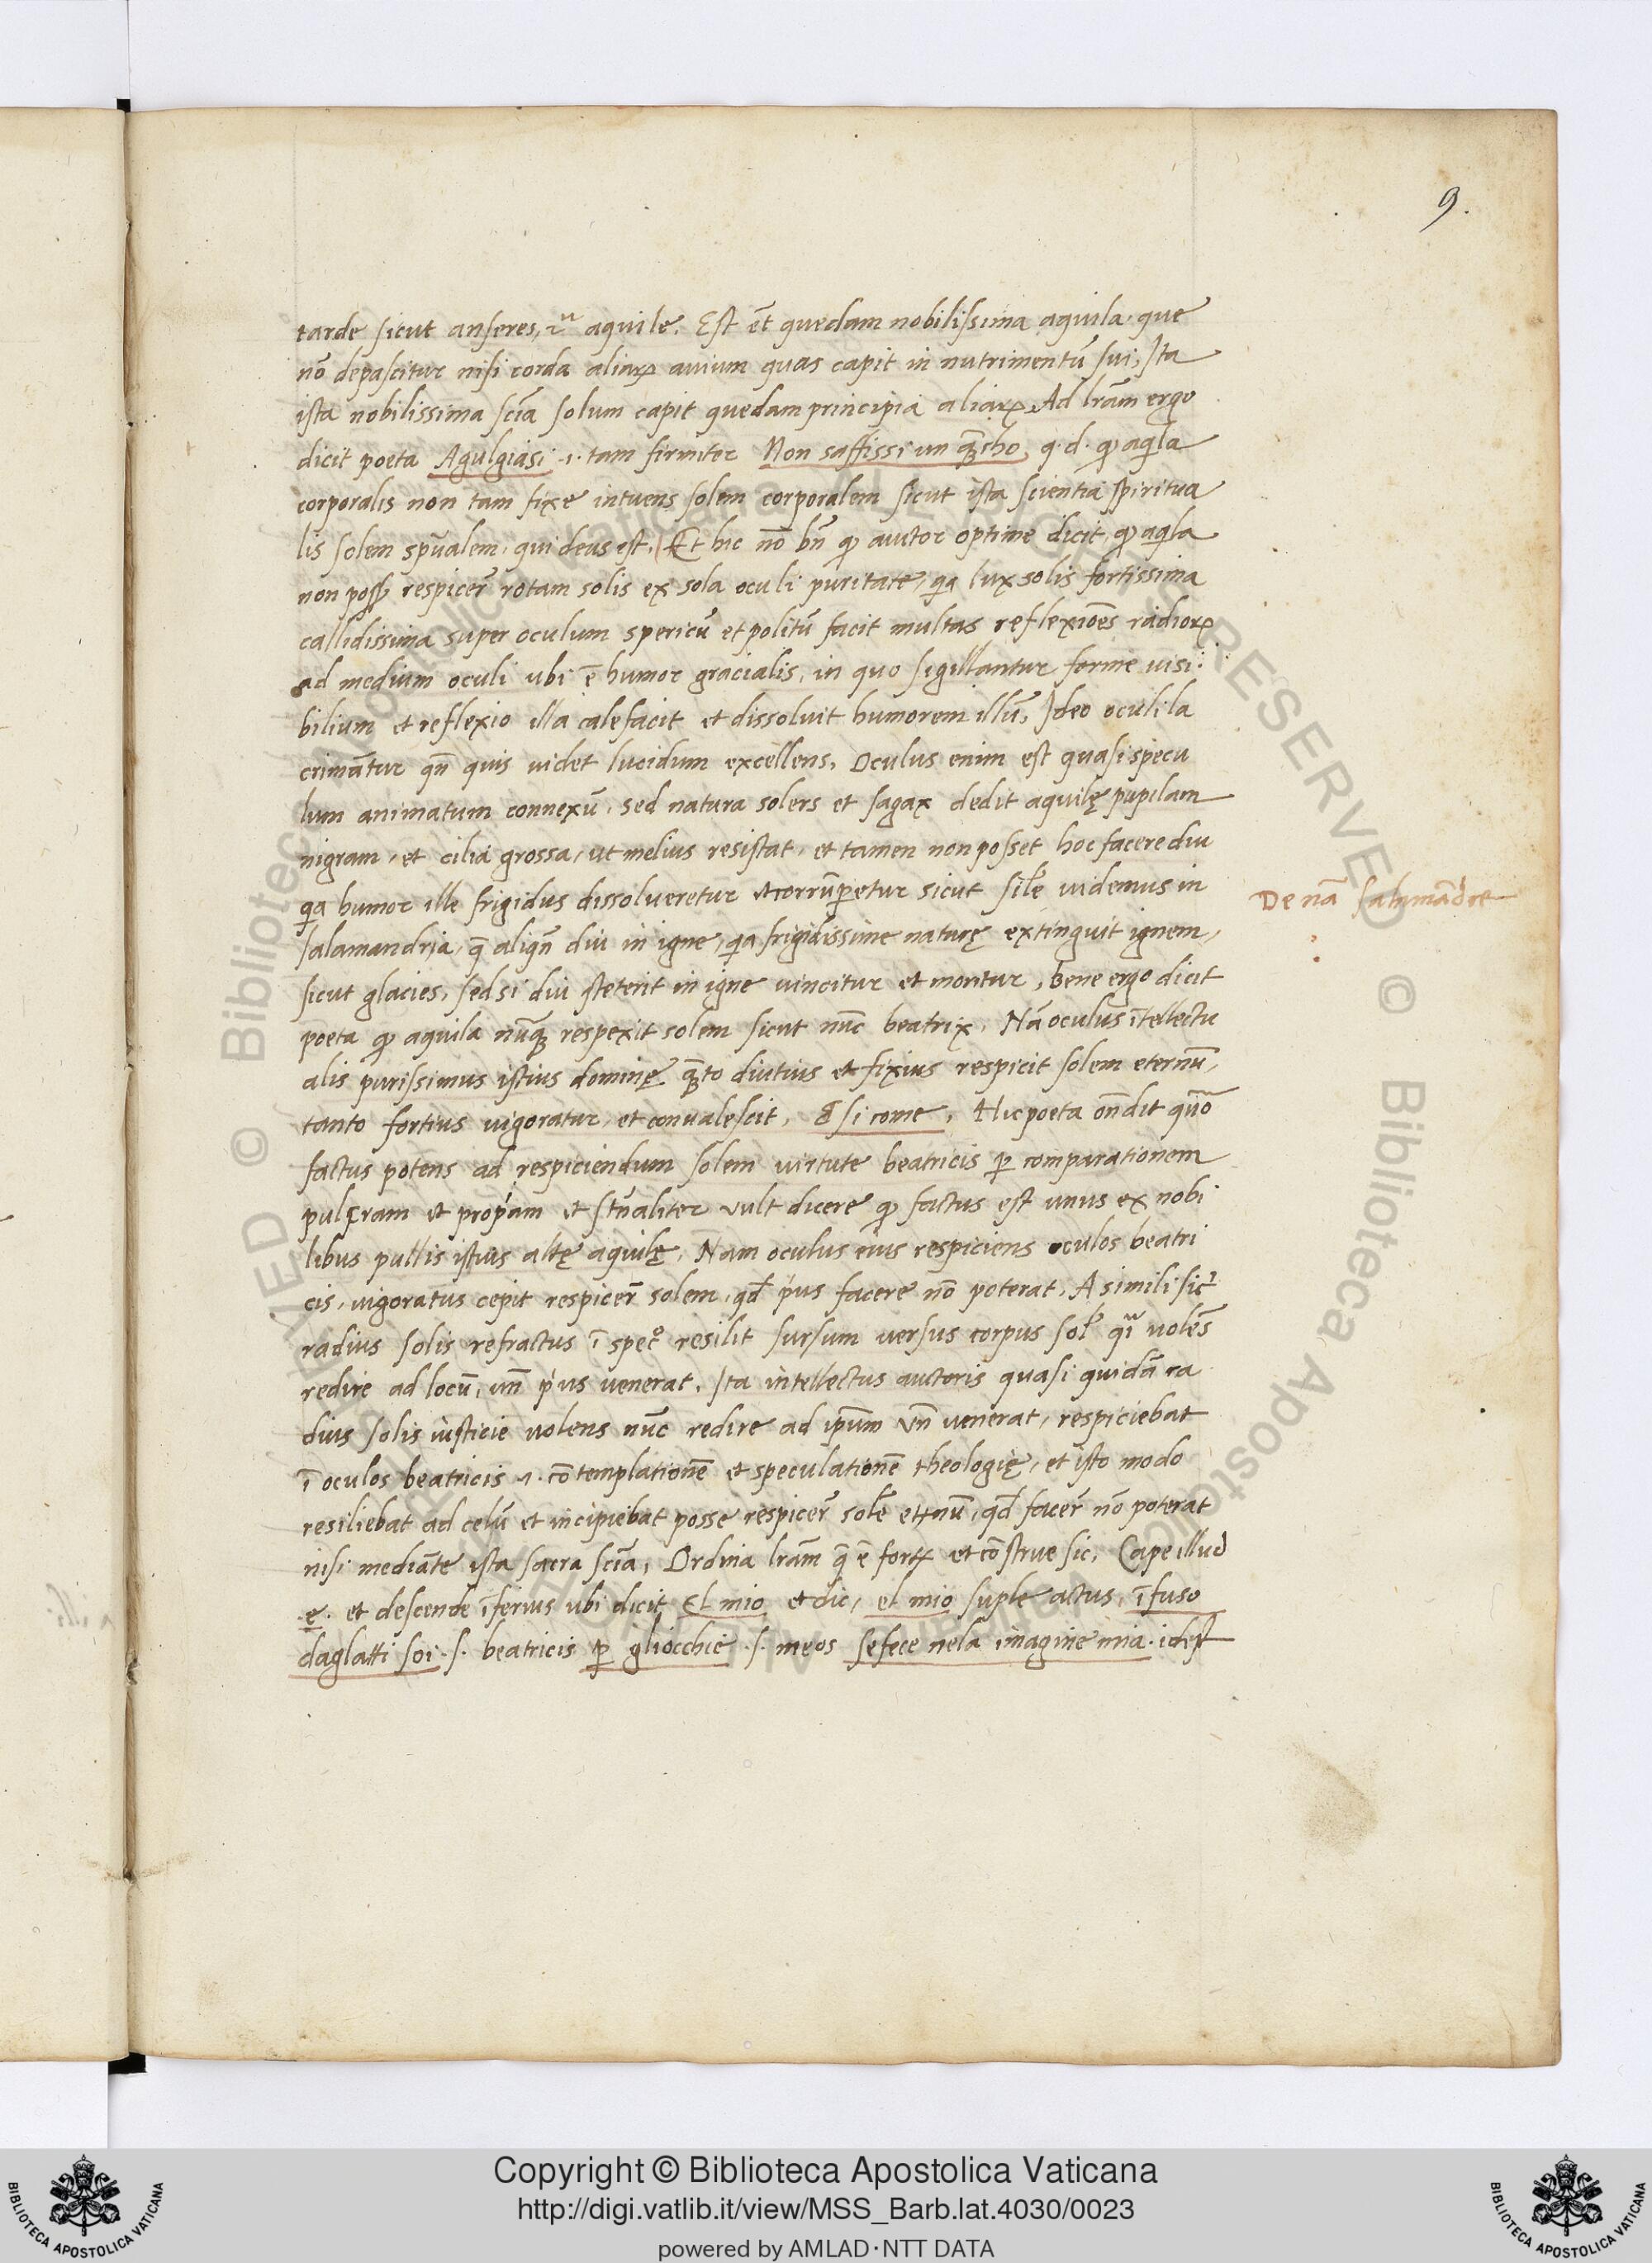 9.
tarde sicut anseres, rͣ aquile. Est ēt quedam nobilissima aquila. que
nō depascitur nisi corda aliaꝝ avium quas capit in nutrimentū sui, Ita
ista nobilissima scīa solum capit quedam principia aliaꝝ. Ad lrām ergo
dicit poeta Agulgiasi .i. tam firmiter Non saffissi un quācho, q. d. ꝙ aqila
corporalis non tam fixe intuens solem corporalem sicut ista scientia spiritua
lis solem spūalem. qui deus est. Et hic nō bn̄ ꝙ auctor optime dicit, ꝙ aqila
non posꝫ respicer̄ rotam solis ex sola oculi puritate, qa lux solis fortissima
callidissima super oculum spericū et politū facit multas reflexiōes radioꝝ
ad medium oculi ubi ē humor gracialis, in quo sigillantur forme visi
bilium et reflexio illa calefacit et dissolvit humorem illū, Ideo oculi la
crimātur qn̄ quis videt lucidum excellens. Oculus enim est quasi specu
lum animatum connexū, sed natura solers et sagax dedit aquilę pupilam
nigram, et cilia grossa, ut melius resistat, et tamen non posset hoc facere diu
qia humor ille frigidus dissolveretur et corrūꝑetur sicut sil̄e videmus in
De nā salamādre
salamandria, q̄ aliqn̄ diu in igne, qia frigidissime naturę extinguit ignem,
sicut glacies, sed si diu steterit in igne vincitur et moritur, bene ergo dicit
poeta ꝙ aquila nūqꝫ respexit solem sicut nūc beatrix. Nā oculus ītellectu
alis purissimus istius dominę quāto diutius et fixius respicit solem eternū,
tanto fortius vigoratur, et convalescit, E si come, Hic poeta on̄dit qūo
factus potens ad respiciendum solem virtute beatricis ꝑ comparationem
pulcram et propiam et stn̄aliter vult dicere ꝙ factus est unus ex nobi
libus pullis istius altę aquilę. Nam oculus eius respiciens oculos beatri
cis, vigoratus cepit respicer̄ solem, qd̄ p'us facere nō poterat. A simili sic̄
radius solis refractus ī spec̊ resilit sursum versus corpus sol' qͣi volēs
redire ad locū, un̄ p'us venerat. Ita intellectus auctoris quasi quidā ra
dius solis iusticie volens nūc redire ad ip̄um un̄ venerat, respiciebat
ī oculos beatricis .i. cōtemplationē et speculationē theologię, et isto modo
resiliebat ad celū et incipiebat posse respicer̄ solē et'nū, qd̄ facer̄ nō poterat
nisi mediāte ista sacra scīa, Ordina lrām q̄ ē fort' et cōstrue sic. Cape illud
e. et descende īferius ubi dicit El mio et dic, el mio suple actus, īfuso
daglatti soi. s. beatricis ꝑ gliocchie .s. meos sefece nela imagine mia. idest
Copyright © Biblioteca Apostolica Vaticana
http://digi.vatlib.it/view/MSS_Barb.lat.4030/0023
powered by AMLAD·NTT DATA